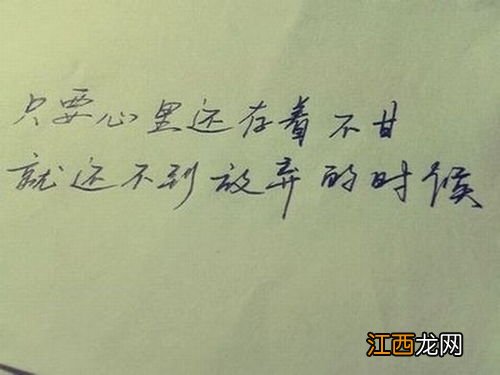 只要心里还存着不甘
就还不到放弃的时候
江西龙网